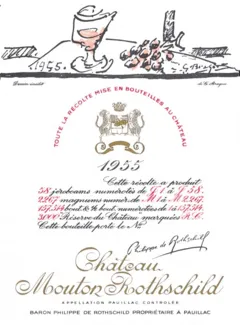 1955.
G. Braque
Dessin inédit
de G. Braque
TOUTE LA RÉCOLTE MISE EN BOUTEILLES AU CHÂTEAU
1955
Cette récolte a produit
58 jéroboams numérotés de
2267 magnums numér. de M 1 à M 2267
bout. & ½ bout. numérotées de 1 à
3000 Réserve du Château marquées R.C.
Cette bouteille porte le No
Philippe de Rothschild
Château
Mouton Rothschild
APPELLATION PAUILLAC CONTROLÉE
BARON PHILIPPE DE ROTHSCHILD PROPRIÉTAIRE A PAUILLAC